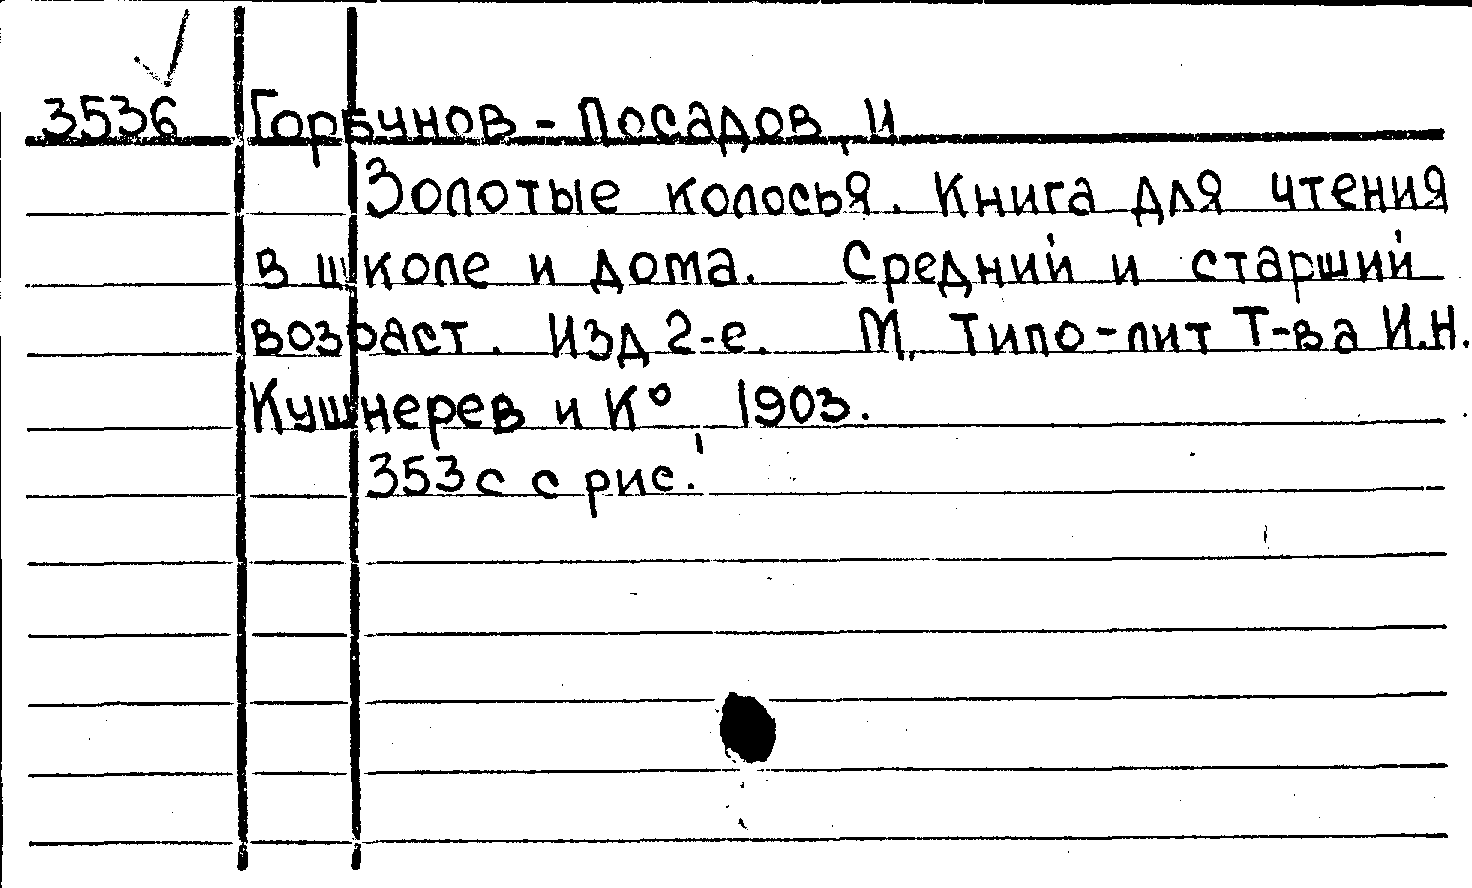 3536 Горбунов-Посадов, И
Золотые колосья. Книга для чтения
в школе и дома. Средний и старший
возраст. Изд 2-е. М, Типо-лит Т-ва И.Н.
Кушнерев и К° 1903.
353 с с рис.